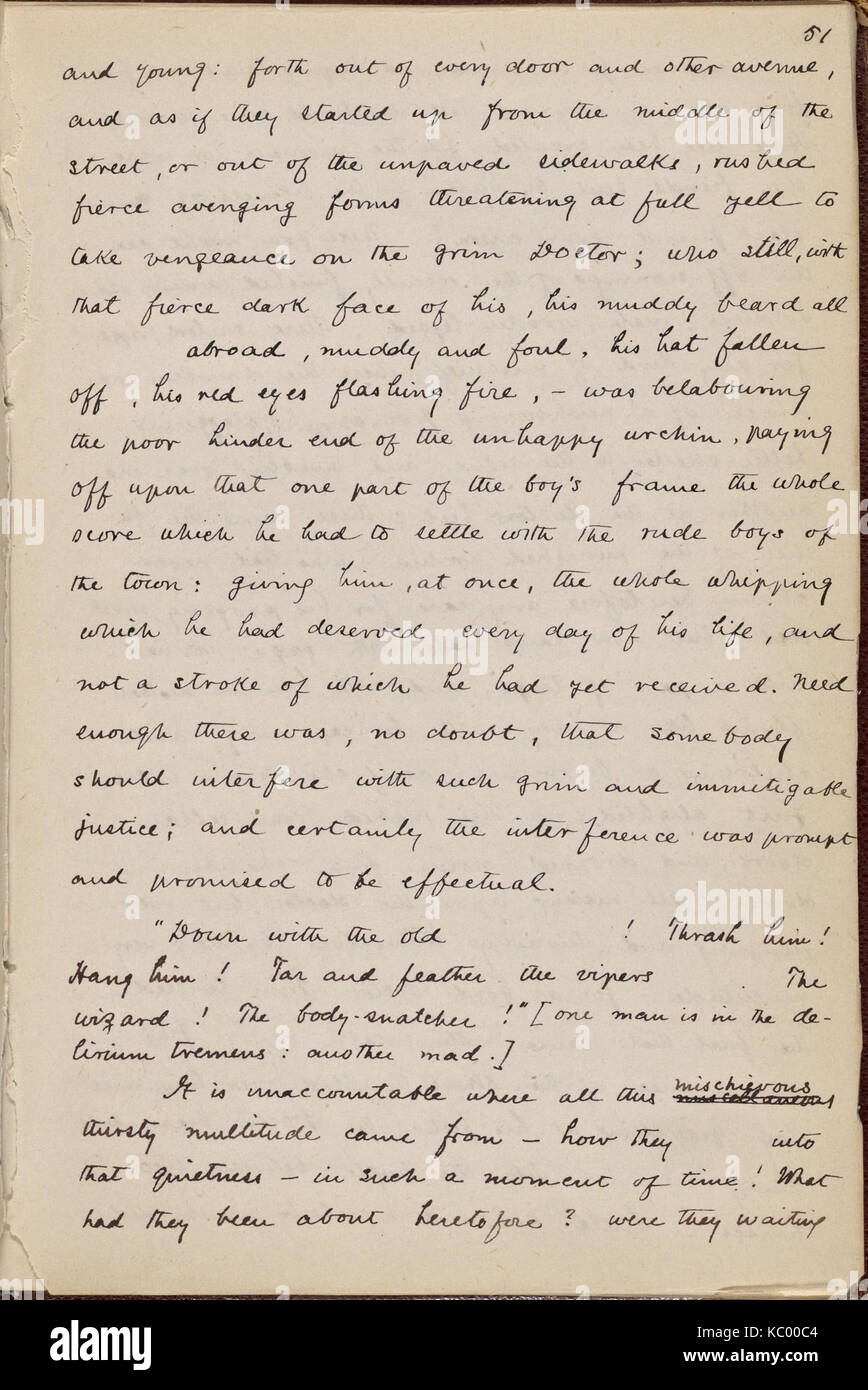 51
and young: forth out of every door and other avenue,
and as if they started up from the middle of the
street, or out of the unpaved sidewalks, rushed
fierce avenging forms threatening at full yell to
take vengeance on the grim Doctor; who still, with
that fierce dark face of his, his muddy beard all
abroad, muddy and foul, his hat fallen
off, his red eyes flashing fire, - was belabouring
the poor hinder end of the unhappy urchin, paying
off upon that one part of the boy's frame the whole
score which he had to settle with the rude boys of
the town: giving him, at once, the whole whipping
which he had deserved every day of his life, and
not a stroke of which he had yet received. Need
enough there was, no doubt, that somebody
should interfere with such grim and immitigable
justice; and certainly the interference was prompt
and promised to be effectual.
"Down with the old ! Thrash him!
Hang him! Tar and feather the vipers . The
wizard! The body-snatcher!" [one man is in the de-
lirium tremens: another mad.]
mischievous
It is unaccountable where all this miscellaneous
thirsty multitude came from - how they into
that quietness - in such a moment of time! What
had they been about heretofore? were they waiting
alamy
Image ID: KC00C4
www.alamy.com